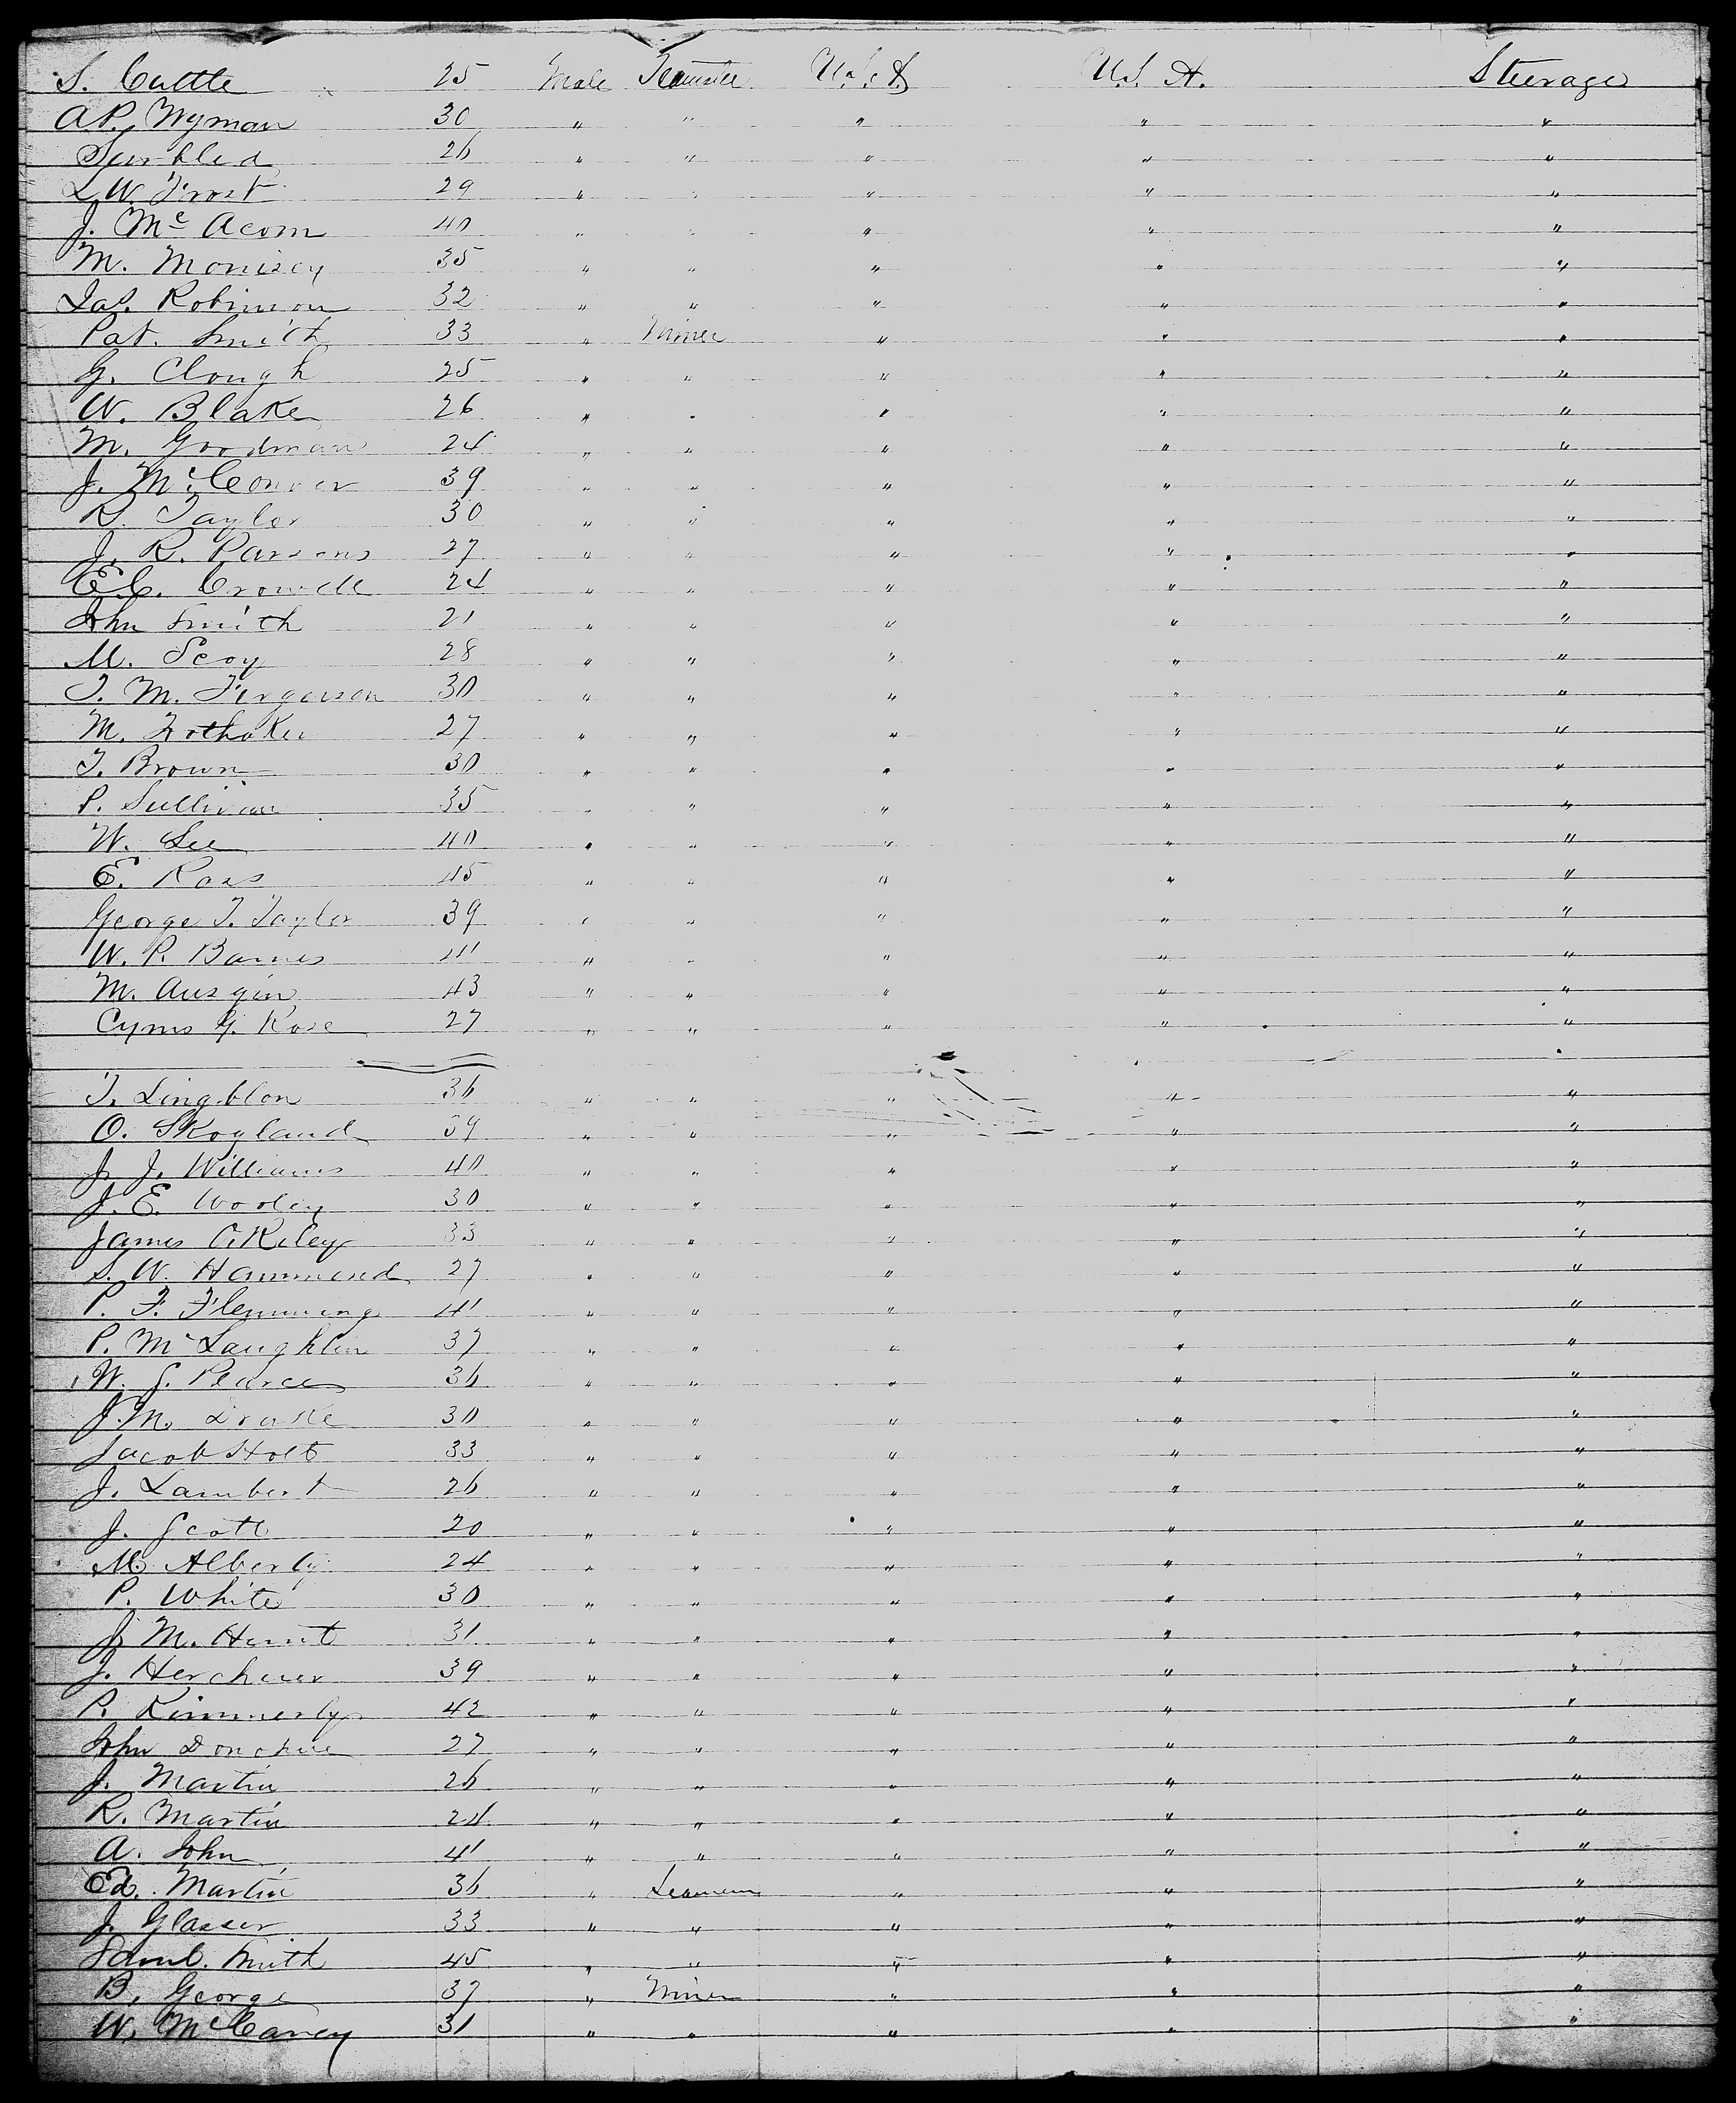 S. Cuttle 25 Male Teamster U.S.A. U.S.A. Steerage
A.P. Wyman 30 " " " " "
26 " " " " "
L.W. Frost 29 " " " " "
J. Mc Acom 40 " " " " "
M. Morrisey 35 " " " " "
Jas. Robinson 32 " " " " "
Pat. Smith 33 " Miner " " "
G. Clough 25 " " " " "
W. Blake 26 " " " " "
M. Goodman 24 " " " " "
J. McConner 39 " " " " "
R. Taylor 30 " " " " "
J. R. Parsons 27 " " " " "
E.C. Crowell 24 " " " " "
John Smith 21 " " " " "
M. Scoy 28 " " " " "
T. M. Ferguson 30 " " " " "
M. 27 " " " " "
T. Brown 30 " " " " "
P. Sullivan 35 " " " " "
W. Lee 40 " " " " "
E. Ross 45 " " " " "
George T. Taylor 39 " " " " "
W. P. Barnes 41 " " " " "
M. Ausgin 43 " " " " "
Cyrus G. Rose 27 " " " " "
T. Lingblon 36 " " " " "
O. Skogland 39 " " " " "
J. J. Williams 40 " " " " "
J. E. Wooley 30 " " " " "
James O.Riley 33 " " " " "
S. W. Hammond 27 " " " " "
P. F. Flemming 41 " " " " "
P. McLaughlin 37 " " " " "
W. J. Pearce 36 " " " " "
J. M. Drake 30 " " " " "
Jacob Holt 33 " " " " "
J. Lambert 26 " " " " "
J. Scott 20 " " " " "
M. Alberty 24 " " " " "
P. White 30 " " " " "
J. M. Hunt 31 " " " " "
J. Herchner 39 " " " " "
P. Kimmerly 42 " " " " "
John Donohue 27 " " " " "
J. Martin 26 " " " " "
R. Martin 24 " " " " "
A. John 41 " " " " "
Ed. Martin 36 " Seamen " " "
J. Glasser 33 " " " " "
Saml. Smith 45 " " " " "
B. George 37 " Miner " " "
W. McCarey 31 " " " " "